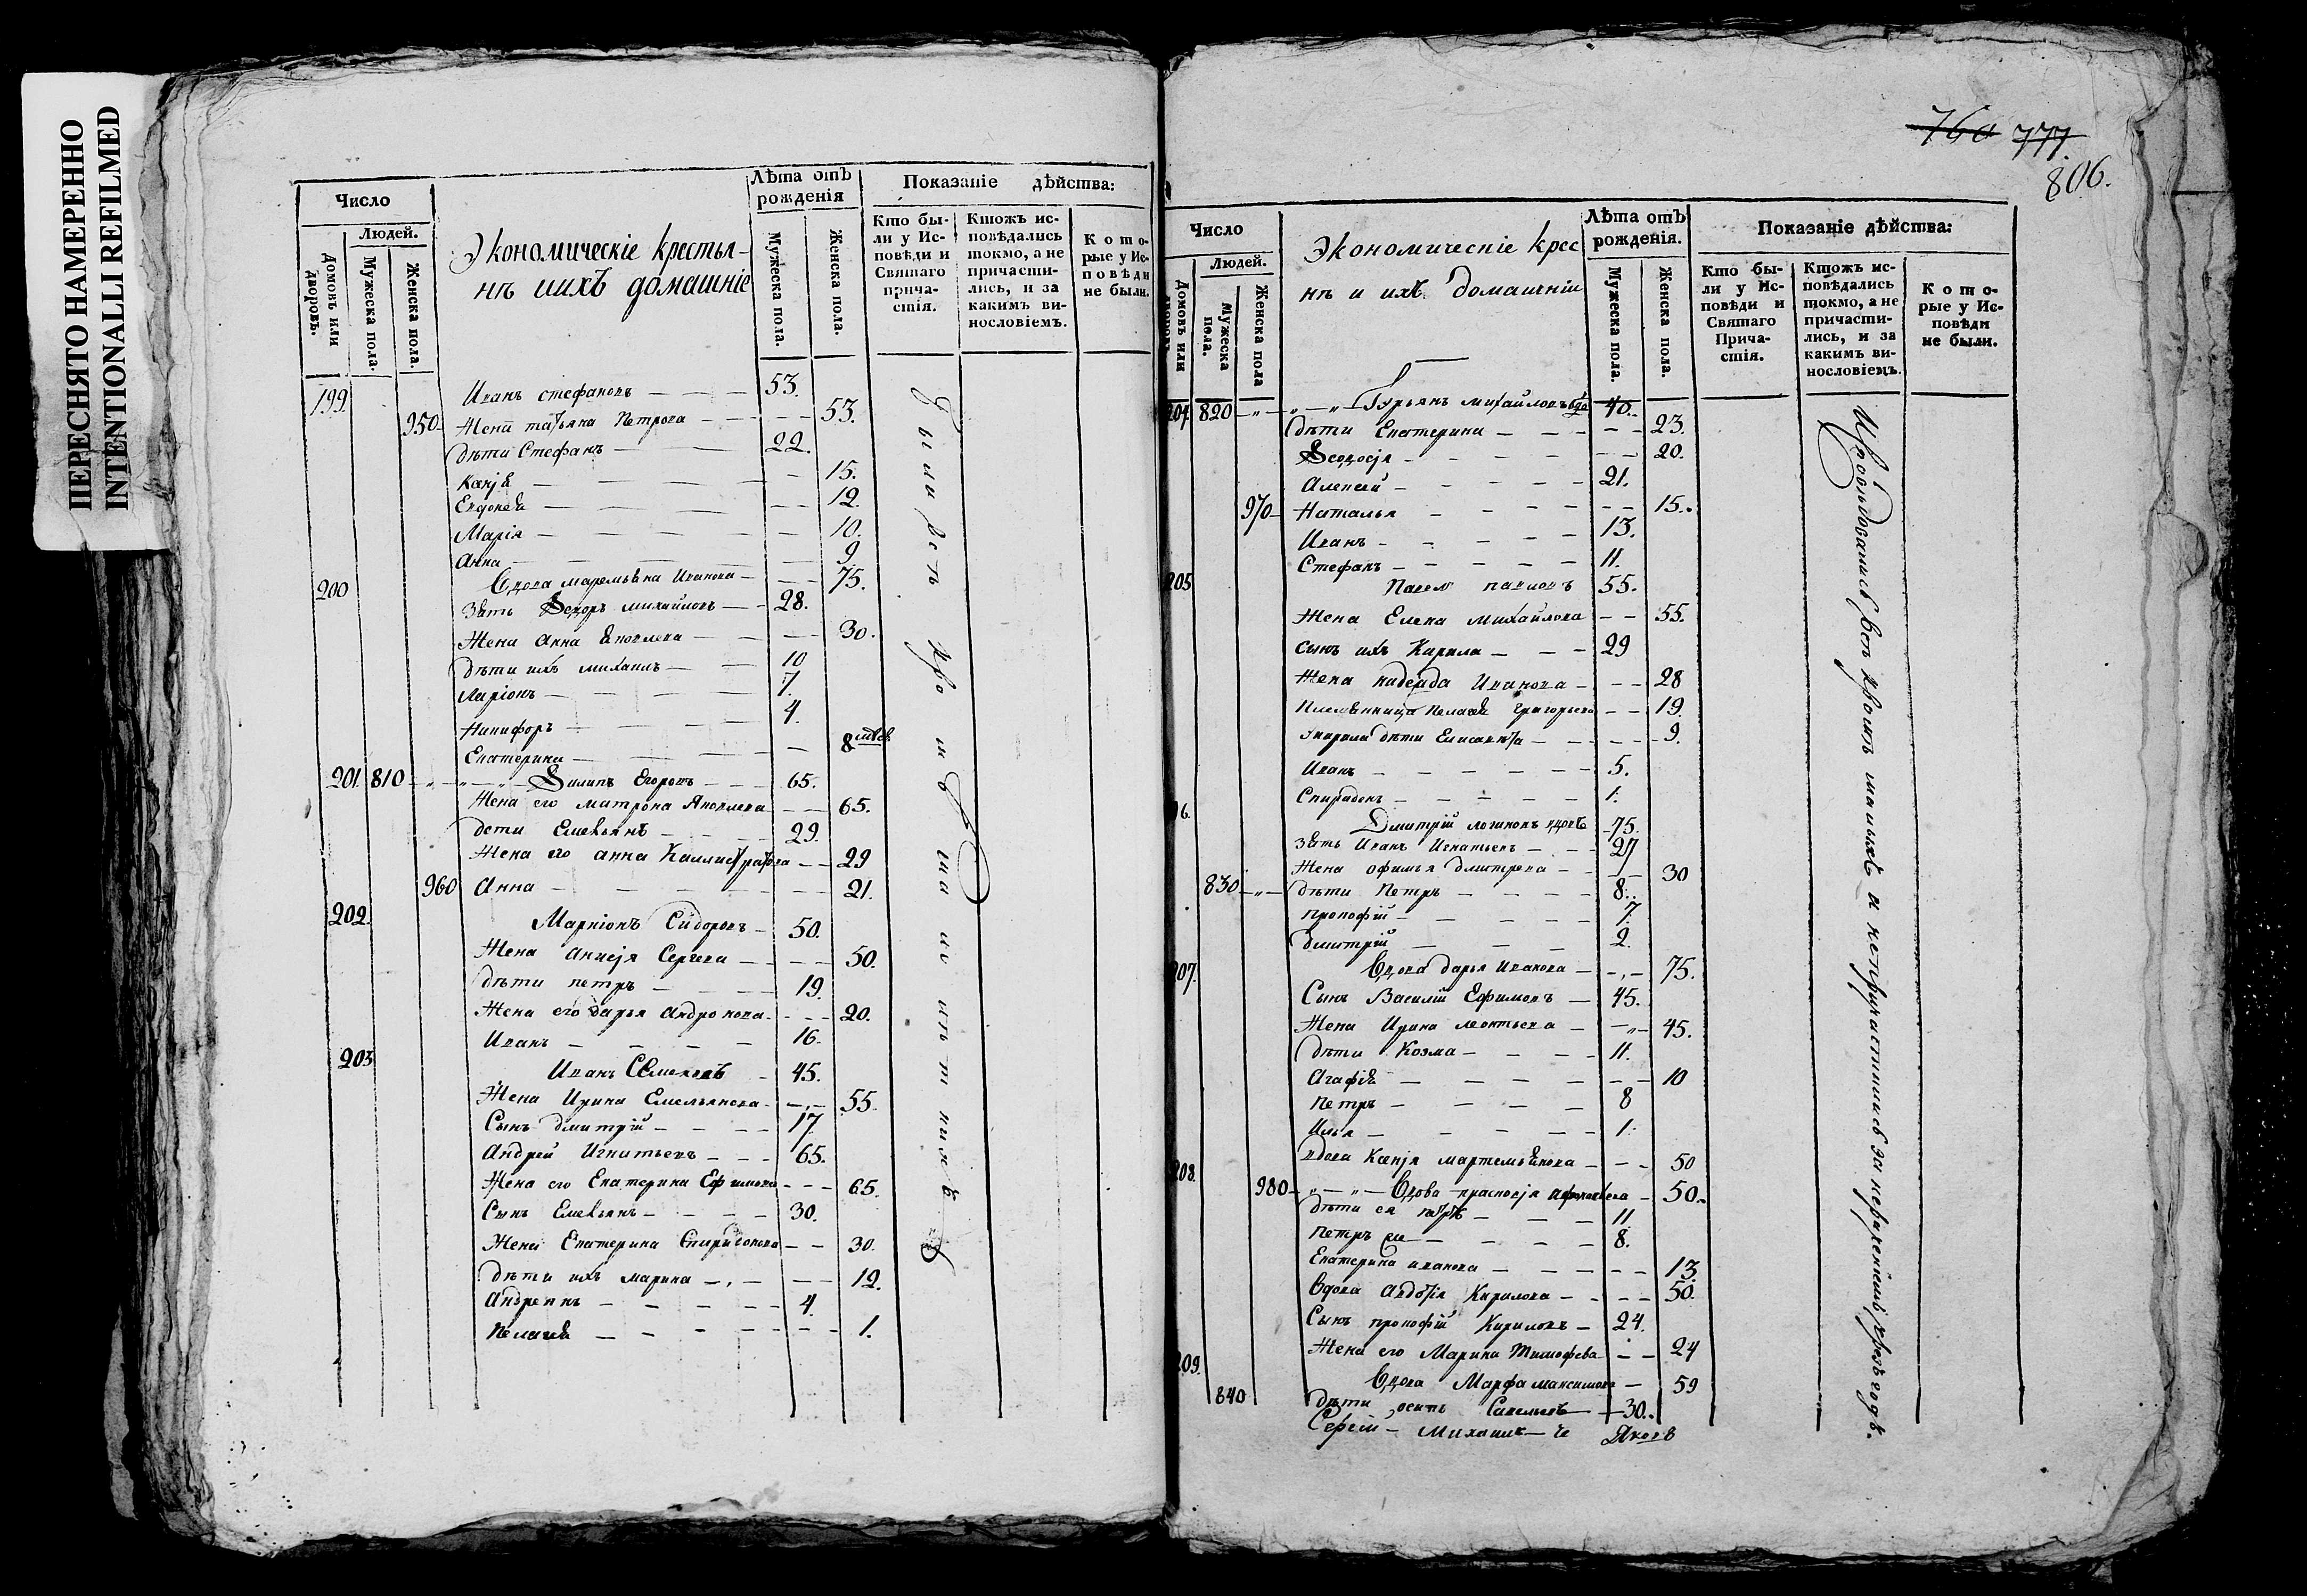 ПЕРЕСНЯТО НАМЕРЕННО
INTENTIONALLI REFILMED
Число
Людей.
Домовъ или дворовъ.
Мужеска пола.
Женска пола.
Экономическіе крестья-
нѣ иихъ домашніе
Лѣта отъ рожденія
Мужеска пола.
Женска пола.
Показаніе дѣйства:
Кто бы-
ли у Ис-
повѣди и
Святаго
прича-
стія.
Ктожъ ис-
повѣдались
токмо, а не
причасти-
лись, и за
какимъ ви-
нословіемъ.
Кото-
рые у Ис-
повѣди
не были.
199 Иванъ стефановъ — 53.
950 Жена татьяна Петрова — 53.
дѣти Стефанъ — 22.
Ксенія — 15.
Евдокея — 12.
Марія — 10.
Анна — 9
200 Вдова маремьяна Иванова — 75.
Зять Ѳедоръ михайловъ — 28.
Жена анна Яковлева — 30.
дѣти ихъ михаилъ — 10
Ларіонъ — 7.
Никифоръ — 4.
Екатерина — 8 мѣс
201. 810 Филипъ Егоровъ — 65.
Жена его матрона Яковлева — 65.
дети Емельянъ — 29.
Жена его анна Каллистратова — 29
960 Анна — 21.
202. Маркіонъ Сидоровъ — 50.
Жена анисія Сергева — 50.
дѣти петръ — 19.
Жена его дарья Андронова — 20.
Иванъ — 16.
203 Иванъ Семеновъ — 45.
Жена Ирина Емельянова — 55.
Сынъ дмитрій — 17.
Андрей Игнатьевъ — 65.
Жена его Екатерина Ефимова — 65.
Сынъ Емельянъ — 30.
Жена Екатерина Спиридонова — 30.
дѣти ихъ марина — 12.
Андреянъ — 4.
Пелагея — 1.
Были всѣ кромѣ
76а 777.
806.
Число
Людей.
Домовъ или
Мужеска пола.
Женска пола
Экономическіе крес
нѣ и ихъ домашніи
Лѣта отъ рожденія.
Мужеска пола.
Женска пола.
Показаніе дѣйства:
Кто бы-
ли у Ис-
повѣди и
Святаго
Прича-
стія.
Ктожъ ис-
повѣдались
токмо, а не
причасти-
лись, и за
какимъ ви-
нословіемъ.
Кото-
рые у Ис-
повѣди
не были.
204. 820 Гурьянъ михайловъ вдо — 40.
дѣти Екатерина — 23.
Ѳеодосія — 20.
Алексей — 21.
970 Наталья — 15.
Иванъ — 13.
Стефанъ — 11.
205 Павел павловъ 55.
Жена Елена михайлова — 55.
сынъ ихъ Кирила — 29
Жена надежда Иванова — 28
Племянница Пелагея григорьева — 19.
Укирили дѣти Елисавета — 9.
Иванъ — 5.
Спиридонъ — 1.
6. Дмитрій логиновъ вдовъ 75.
Зять Иванъ Игнатьевъ — 27
Жена офимья дмитрева — 30
830 дѣти Петръ — 8.
Прокофій — 7.
Дмитрій — 2.
207. Вдова дарья иванова — 75.
Сынъ Василій Ефимовъ — 45.
Жена Ирина леонтьева — 45.
дѣти Козма — 11.
Агафія — 10
Петръ — 8
Илья — 1.
вдова Ксенія мартемьянова — 50
208. 980 Вдова праскосія — 50.
дѣти ея — 11
Петръ — 8.
Екатерина иванова — 13.
Вдова авдотія Кирилова — 50.
Сынъ прокофій Кириловъ — 24.
Жена его Марина Тимофева — 24
209. Вдова Марфа максимова — 59
840 дѣти осипъ Савельевъ — 30.
Исповѣдовались всѣ кромѣ малыхъ а непричастились за нераченіемъ чрезъ годъ.
Сергій — Михаил — Яковв